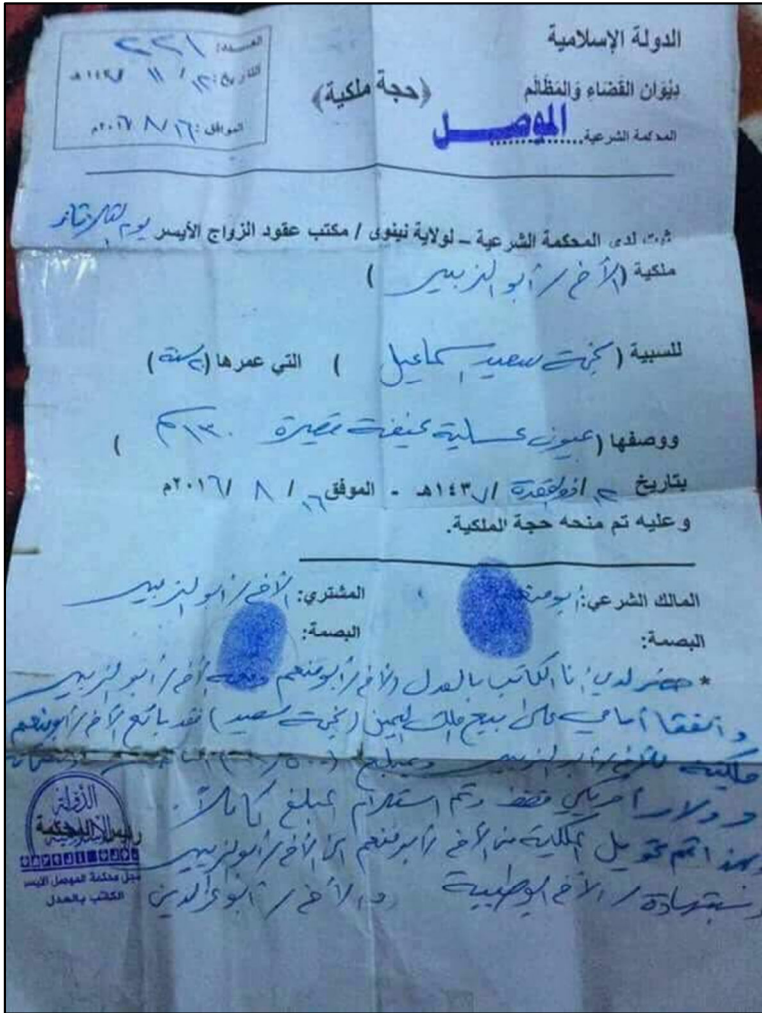 الدولة الإسلامية
ديوان القضاء والمظالم
المحكمة الشرعية ........... الموصل
(حجة ملكية)
العدد: ٢٢١
التاريخ: ١٢ / ١١ / ١٤٣٧ هـ
الموافق: ١٦ / ٨ / ٢٠١٦م
ثبت لدى المحكمة الشرعية – لولاية نينوى / مكتب عقود الزواج الأيسر يوم الثلاثاء
ملكية (الأخ / أبو الزبير )
للسبية ( سعيد اسماعيل ) التي عمرها ( سنة)
ووصفها (عيون عسلية قصيرة ١٣٠ )
بتاريخ / ذو القعدة / ١٤٣٧هـ - الموفق ١٦ / ٨ / ٢٠١٦م
وعليه تم منحه حجة الملكية.
المالك الشرعي: أبو منعم المشتري: الأخ / أبو الزبير
البصمة: البصمة:
* حضر لدي أنا الكاتب بالعدل الأخ / أبو منعم أخ / أبو الزبير
واتفقا أمامي على بيع ملك اليمين ( سعيد) فقد بائع الأخ / أبو منعم
ملكيته للأخ / أبو الزبير وبمبلغ
دولار أمريكي فقط وتم استلام المبلغ كاملاً.
وبهذا تم تحويل الملكية من الأخ / أبو منعم الى الأخ / أبو الزبير
وبشهادة / الأخ والأخ / أبو عز الدين
الدولة الإسلامية
رئيس المحكمة
سجل محكمة الموصل الأيسر
الكاتب بالعدل